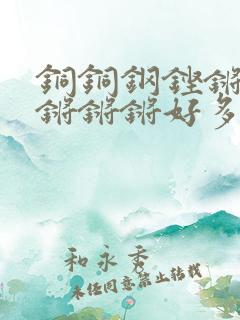 銅銅鋼鏗鏘
鏘鏘鏘好多
和永秀
未经同意禁止转载